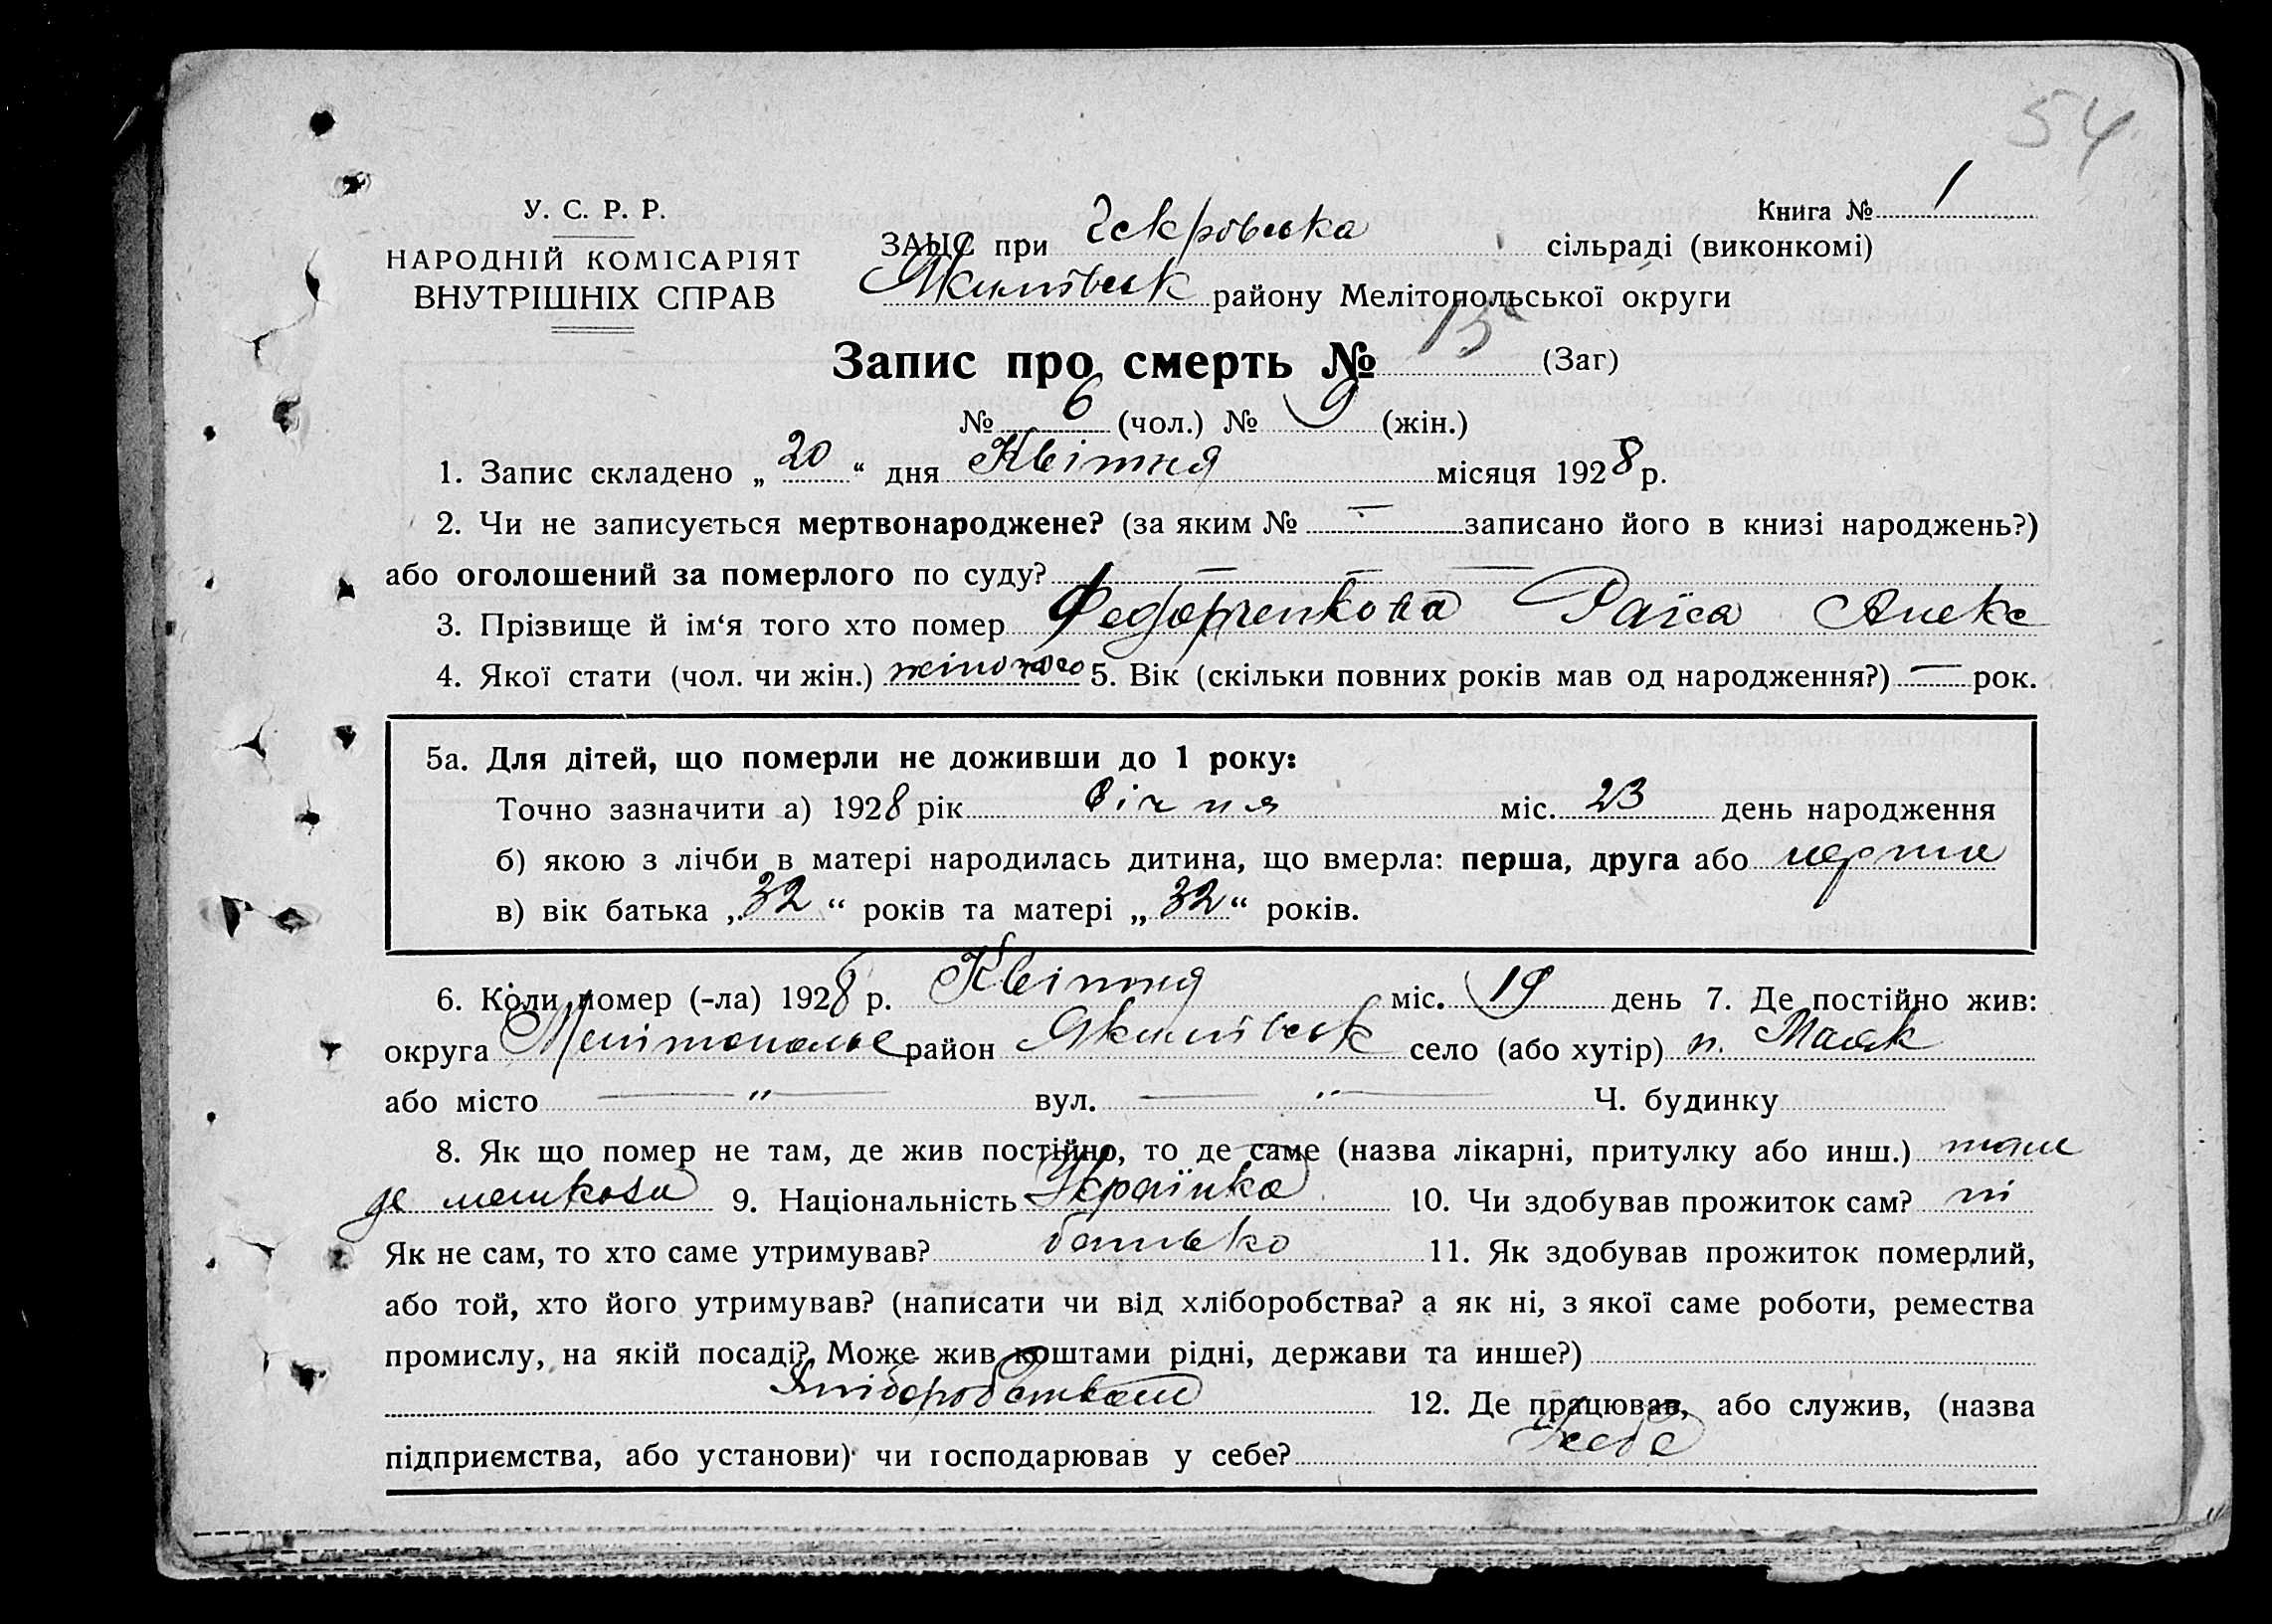 54
У. С. Р. Р.
НАРОДНІЙ КОМІСАРІЯТ
ВНУТРІШНІХ СПРАВ
Книга № 1
ЗАЦС при сільраді (виконкомі)
Якимівськ району Мелітопольської округи
Запис про смерть № 15 (Заг)
№ 6 (чол.) № 9 (жін.)
1. Запис складено „ 20 “ дня Квітня місяця 1928 р.
2. Чи не записується мертвонароджене? (за яким № — записано його в книзі народжень?)
або оголошений за померлого по суду? — — —
3. Прізвище й ім‘я того хто помер Федорченкова Раїса Алекс
4. Якої стати (чол. чи жін.) жіночого 5. Вік (скільки повних років мав од народження?) — рок.
5а. Для дітей, що померли не доживши до 1 року:
Точно зазначити а) 1928 рік Січня міс. 23 день народження
б) якою з лічби в матері народилась дитина, що вмерла: перша, друга або перша
в) вік батька „ 32 “ років та матері „ 32 “ років.
6. Коли помер (-ла) 1928 р. Квітня міс. 19 день 7. Де постійно жив:
округа Мелітопольс район Якимівськ село (або хутір) п. Маяк
або місто — " — вул. — " — Ч. будинку
8. Як що помер не там, де жив постійно, то де саме (назва лікарні, притулку або инш.) там
де мешкала 9. Національність Українка 10. Чи здобував прожиток сам? ні
Як не сам, то хто саме утримував? батько 11. Як здобував прожиток померлий,
або той, хто його утримував? (написати чи від хліборобства? а як ні, з якої саме роботи, ремества
промислу, на якій посаді? Може жив коштами рідні, держави та инше?)
Хліборобством 12. Де працював, або служив, (назва
підприємства, або установи) чи господарював у себе? У себе